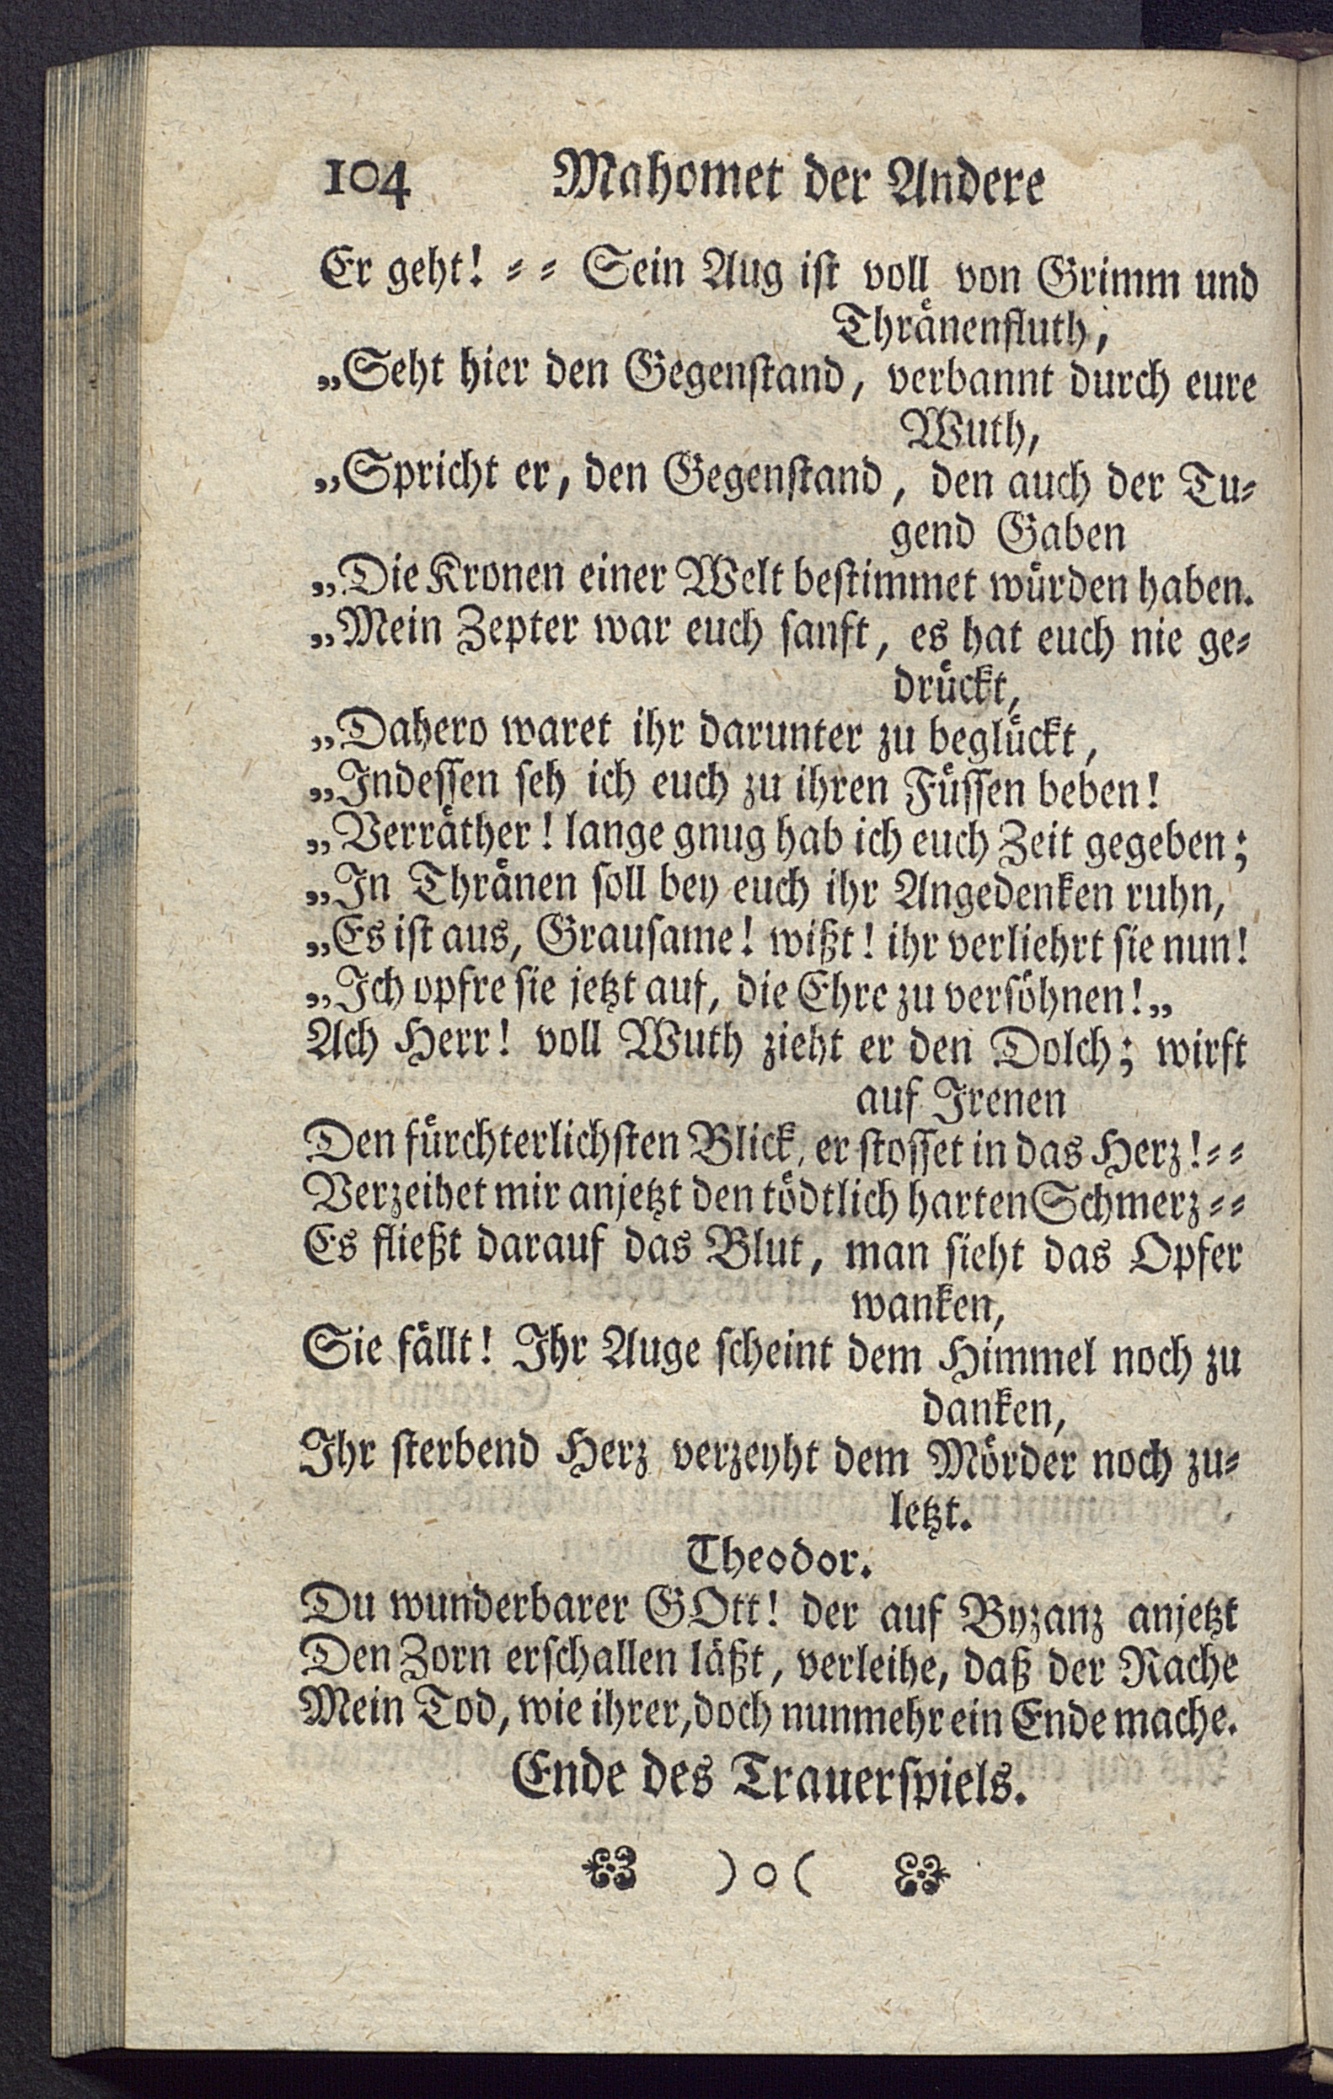 104 Mahomet der Andere
Er geht! ⸗ ⸗ Sein Aug ist voll von Grimm und
Thränenfluth,
„Seht hier den Gegenstand, verbannt durch eure
Wuth,
„Spricht er, den Gegenstand, den auch der Tu⸗
gend Gaben
„Die Kronen einer Welt bestimmet würden haben.
„Mein Zepter war euch sanft, es hat euch nie ge⸗
drückt,
„Dahero waret ihr darunter zu beglückt,
„Indessen seh ich euch zu ihren Füssen beben!
„Verräther! lange gnug hab ich euch Zeit gegeben;
„In Thränen soll bey euch ihr Angedenken ruhn,
„Es ist aus, Grausame! wißt! ihr verliehrt sie nun!
„Ich opfre sie jetzt auf, die Ehre zu versöhnen!„
Ach Herr! voll Wuth zieht er den Dolch; wirft
auf Irenen
Den fürchterlichsten Blick, er stosset in das Herz!⸗⸗
Verzeihet mir anjetzt den tödtlich harten Schmerz⸗⸗
Es fließt darauf das Blut, man sieht das Opfer
wanken,
Sie fällt! Ihr Auge scheint dem Himmel noch zu
danken,
Ihr sterbend Herz verzeyht dem Mörder noch zu⸗
letzt.
Theodor.
Du wunderbarer GOtt! der auf Byzanz anjetzt
Den Zorn erschallen läßt, verleihe, daß der Rache
Mein Tod, wie ihrer, doch nunmehr ein Ende mache.
Ende des Trauerspiels.
)o(